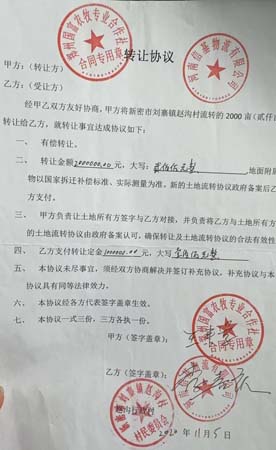 转让协议
甲方：（转让方）
乙方：（受让方）
经甲乙双方友好协商，甲方将新密市刘寨镇赵沟村流转的2000亩（贰仟亩
转让给乙方，就转让事宜达成协议如下：
一、 有偿转让。
二、 转让金额2000000.00元，大写：贰佰伍元整，地面附属
物以国家拆迁补偿标准、实际测量为准。新的土地流转协议政府备案后乙
方支付。
三、 甲方负责让土地所有方签字与乙方对接，并负责将乙方与土地所有方
的土地流转协议由政府备案认可，确保转让及土地流转协议的合法有效性
四、 乙方支付转让定金 元，大写
五、 本协议未尽事宜，须经双方协商解决并签订补充协议。补充协议与本
协议具有同等法律效力。
六、 本协议经各方代表签字盖章生效。
七、 本协议一式三份，三方各执一份。
甲方（签字盖章）：
乙方（签字盖章）：
2020年11月5日
郑州国富农牧专业合作社
合同专用章
河南信泰物流有限公司
村民委员会